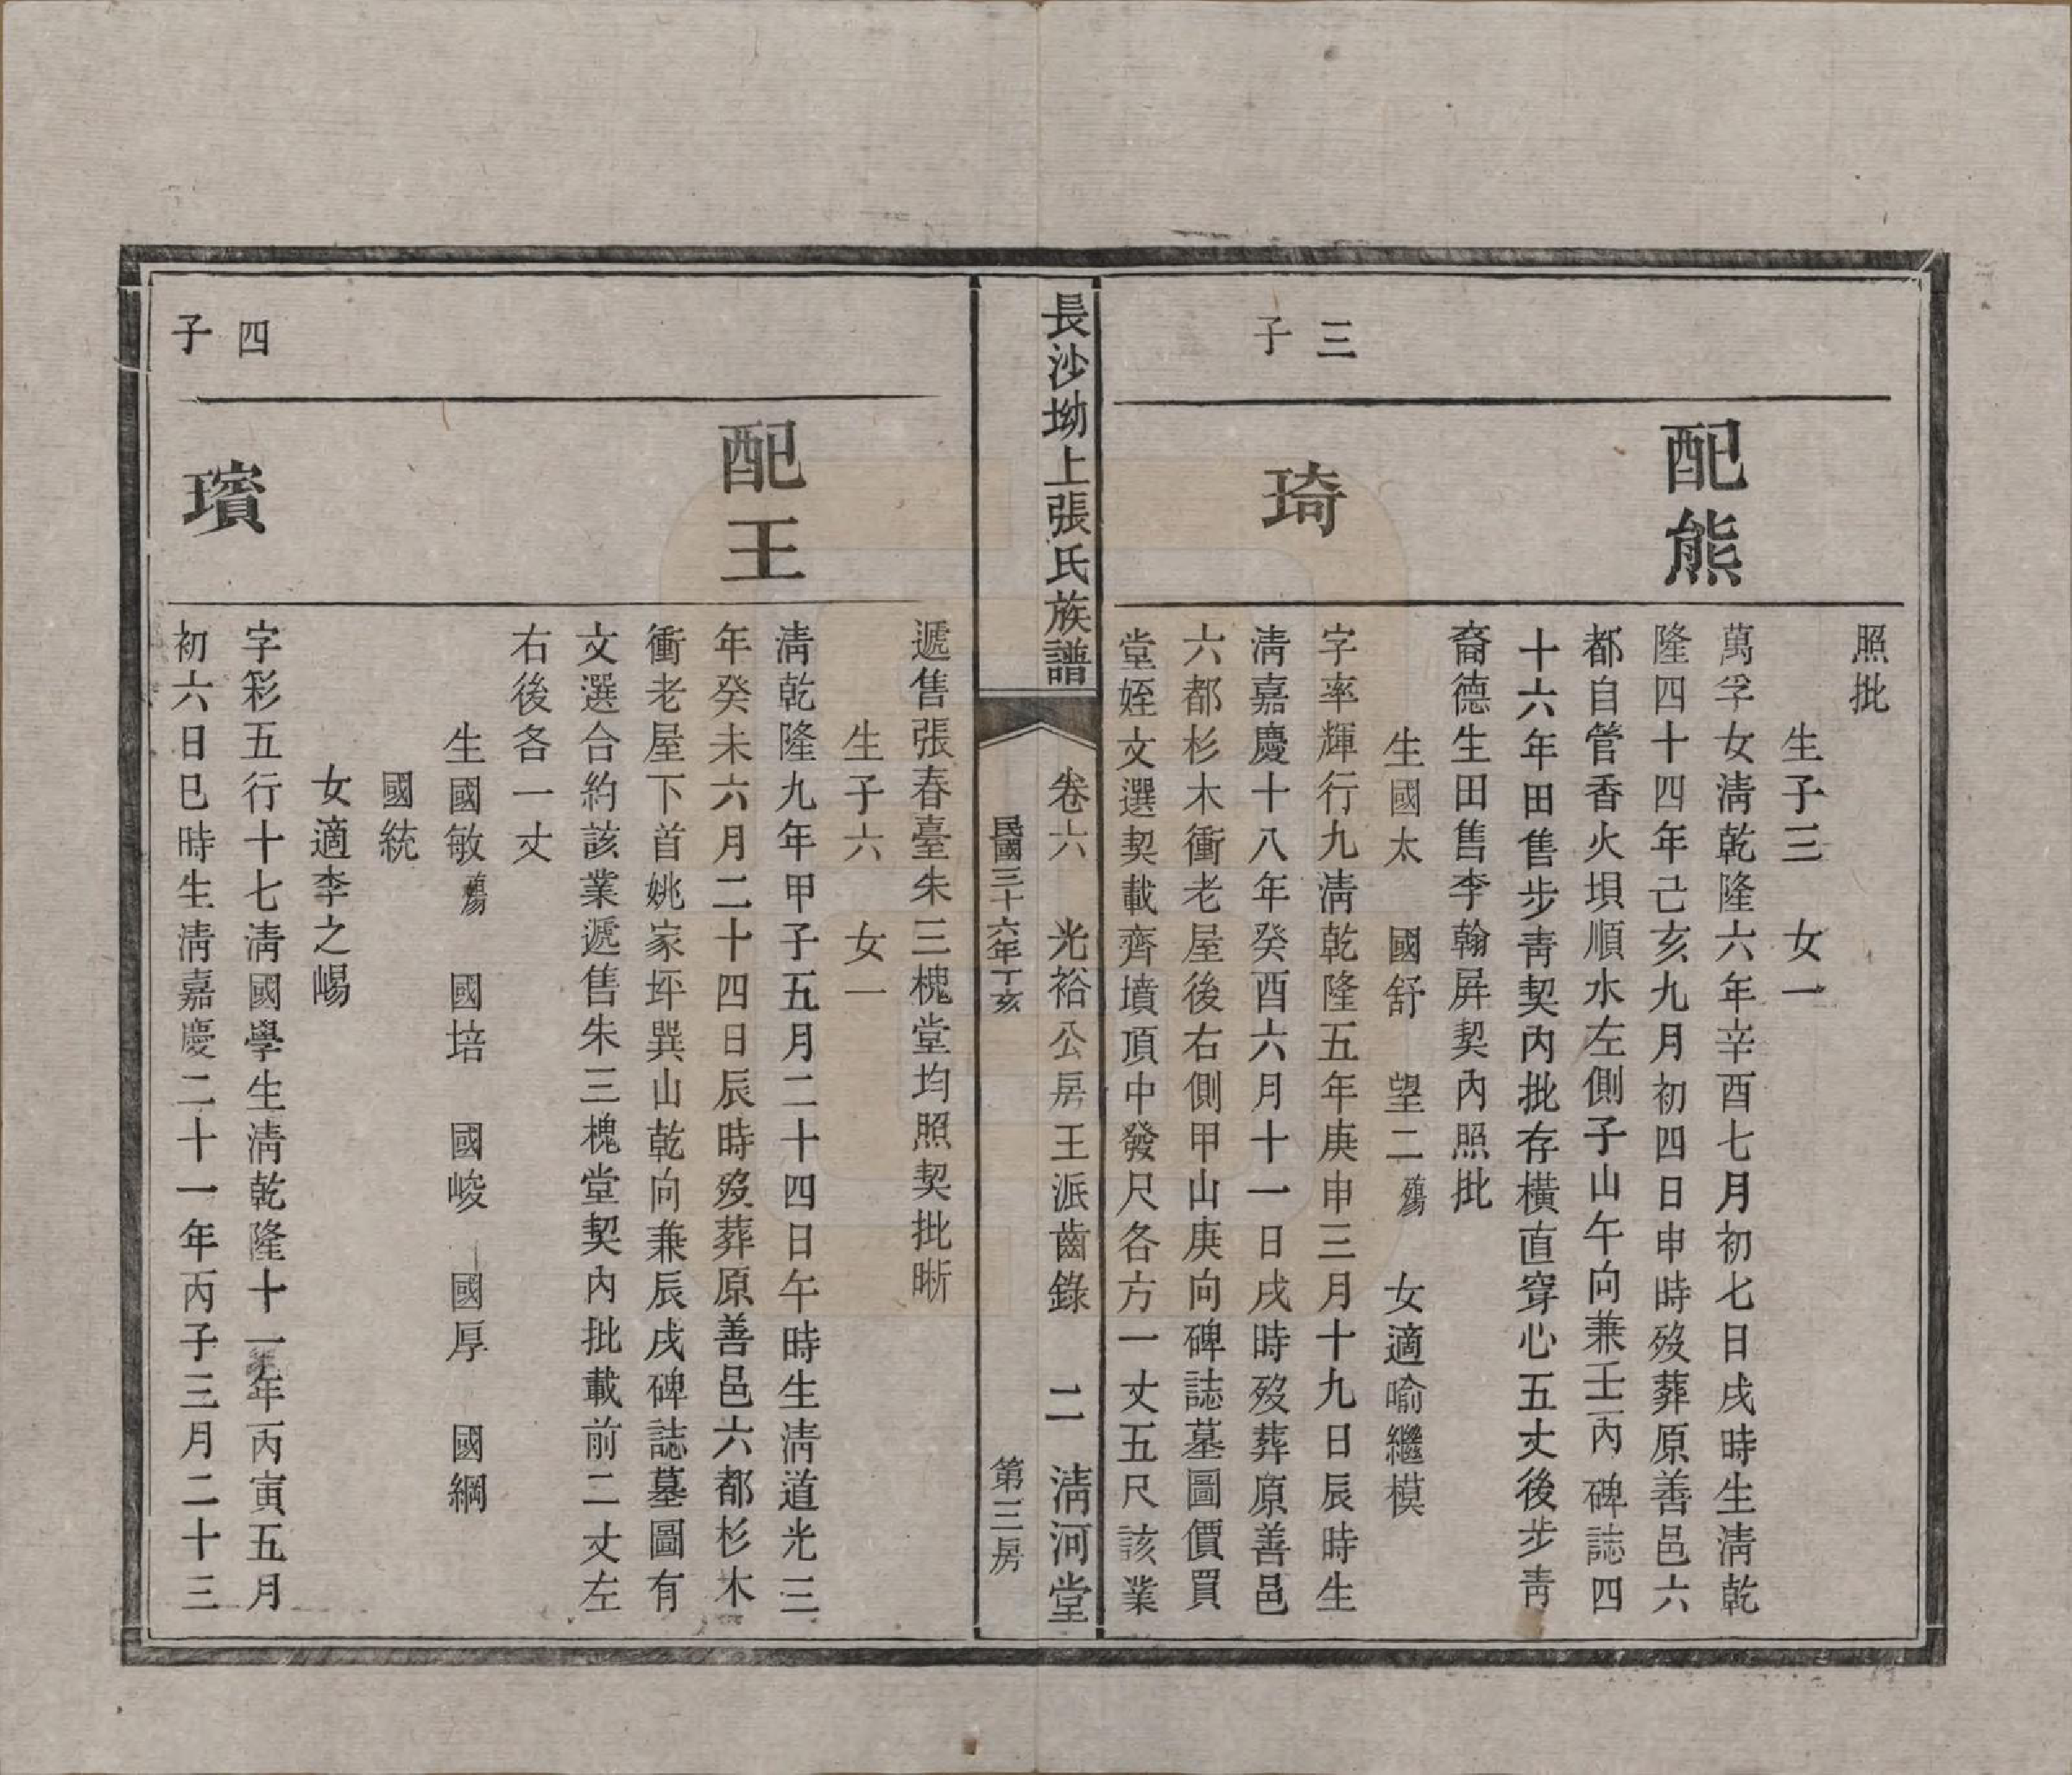 照批
生子三　女一
配熊
萬孚女淸乾隆六年辛酉七月初七日戌時生淸乾
隆四十四年己亥九月初四日申時歿葬原善邑六
都自管香火垻順水左側子山午向兼壬丙碑誌四
十六年田售步靑契內批存橫直穿心五丈後步靑
裔德生田售李翰屛契內照批
生國太　國舒　望二殤　女適喻繼模
三子
琦
字率輝行九淸乾隆五年庚申三月十九日辰時生
淸嘉慶十八年癸酉六月十一日戌時歿葬原善邑
六都杉木衝老屋後右側甲山庚向碑誌墓圖價買
堂姪文選契載齊墳頂中發尺各方一丈五尺該業
長沙坳上張氏族譜
卷六　光裕公房王派齒錄　二　淸河堂
民國三十六年丁亥　第三房
遞售張春臺朱三槐堂均照契批晰
生子六　女一
配王
淸乾隆九年甲子五月二十四日午時生淸道光三
年癸未六月二十四日辰時歿葬原善邑六都杉木
衝老屋下首姚家坪巽山乾向兼辰戌碑誌墓圖有
文選合約該業遞售朱三槐堂契內批載前二丈左
右後各一丈
生國敏殤　國培　國峻　國厚　國綱
國統
女適李之崵
四子
璸
字彩五行十七淸國學生淸乾隆十一年丙寅五月
初六日巳時生淸嘉慶二十一年丙子三月二十三